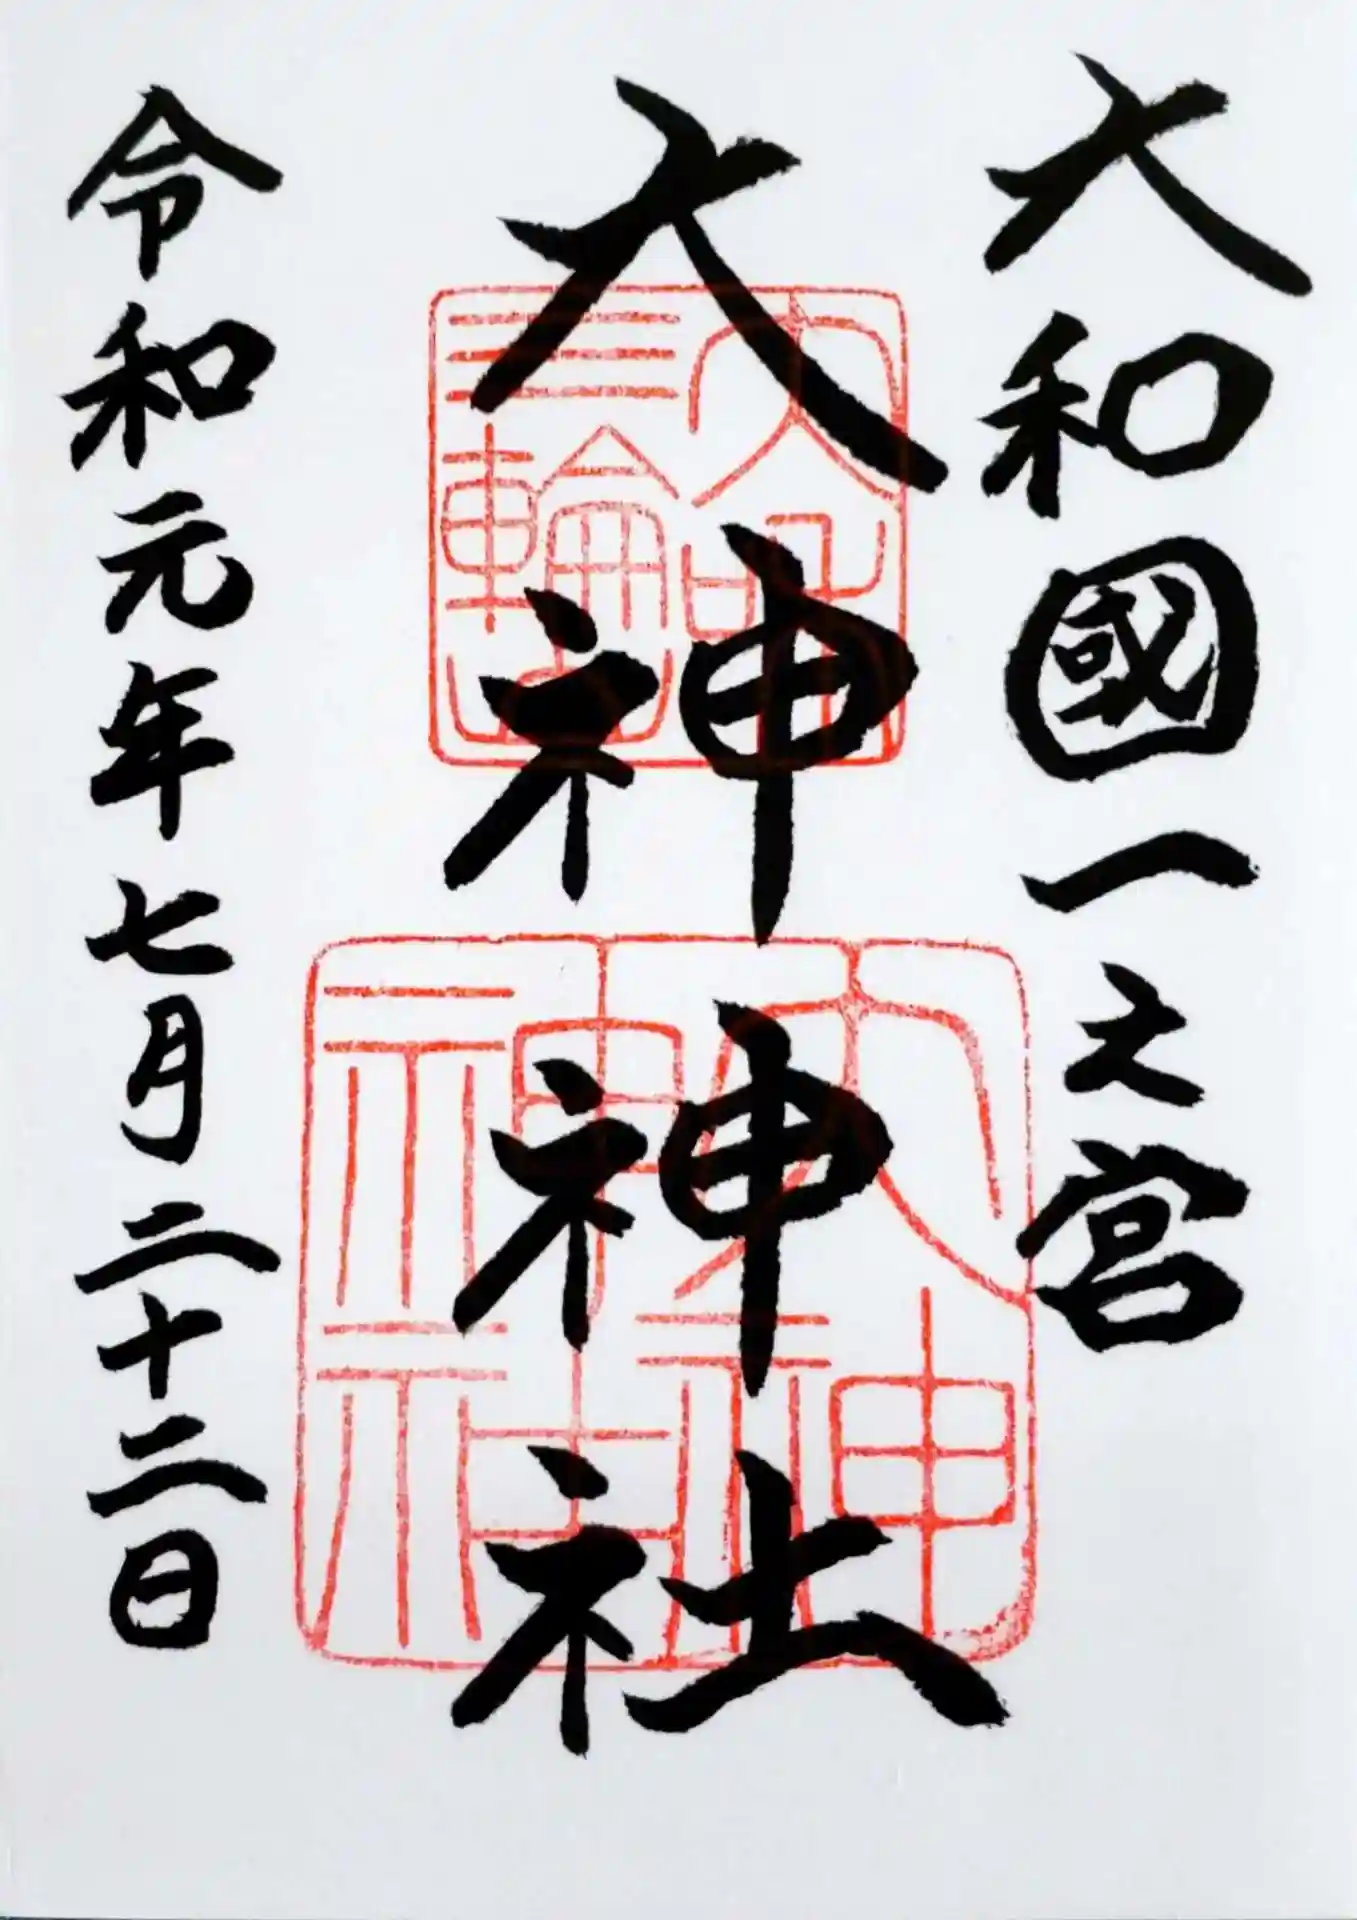 大和國一之宮
大神神社
令和元年七月二十二日
三輪山
大神
神社